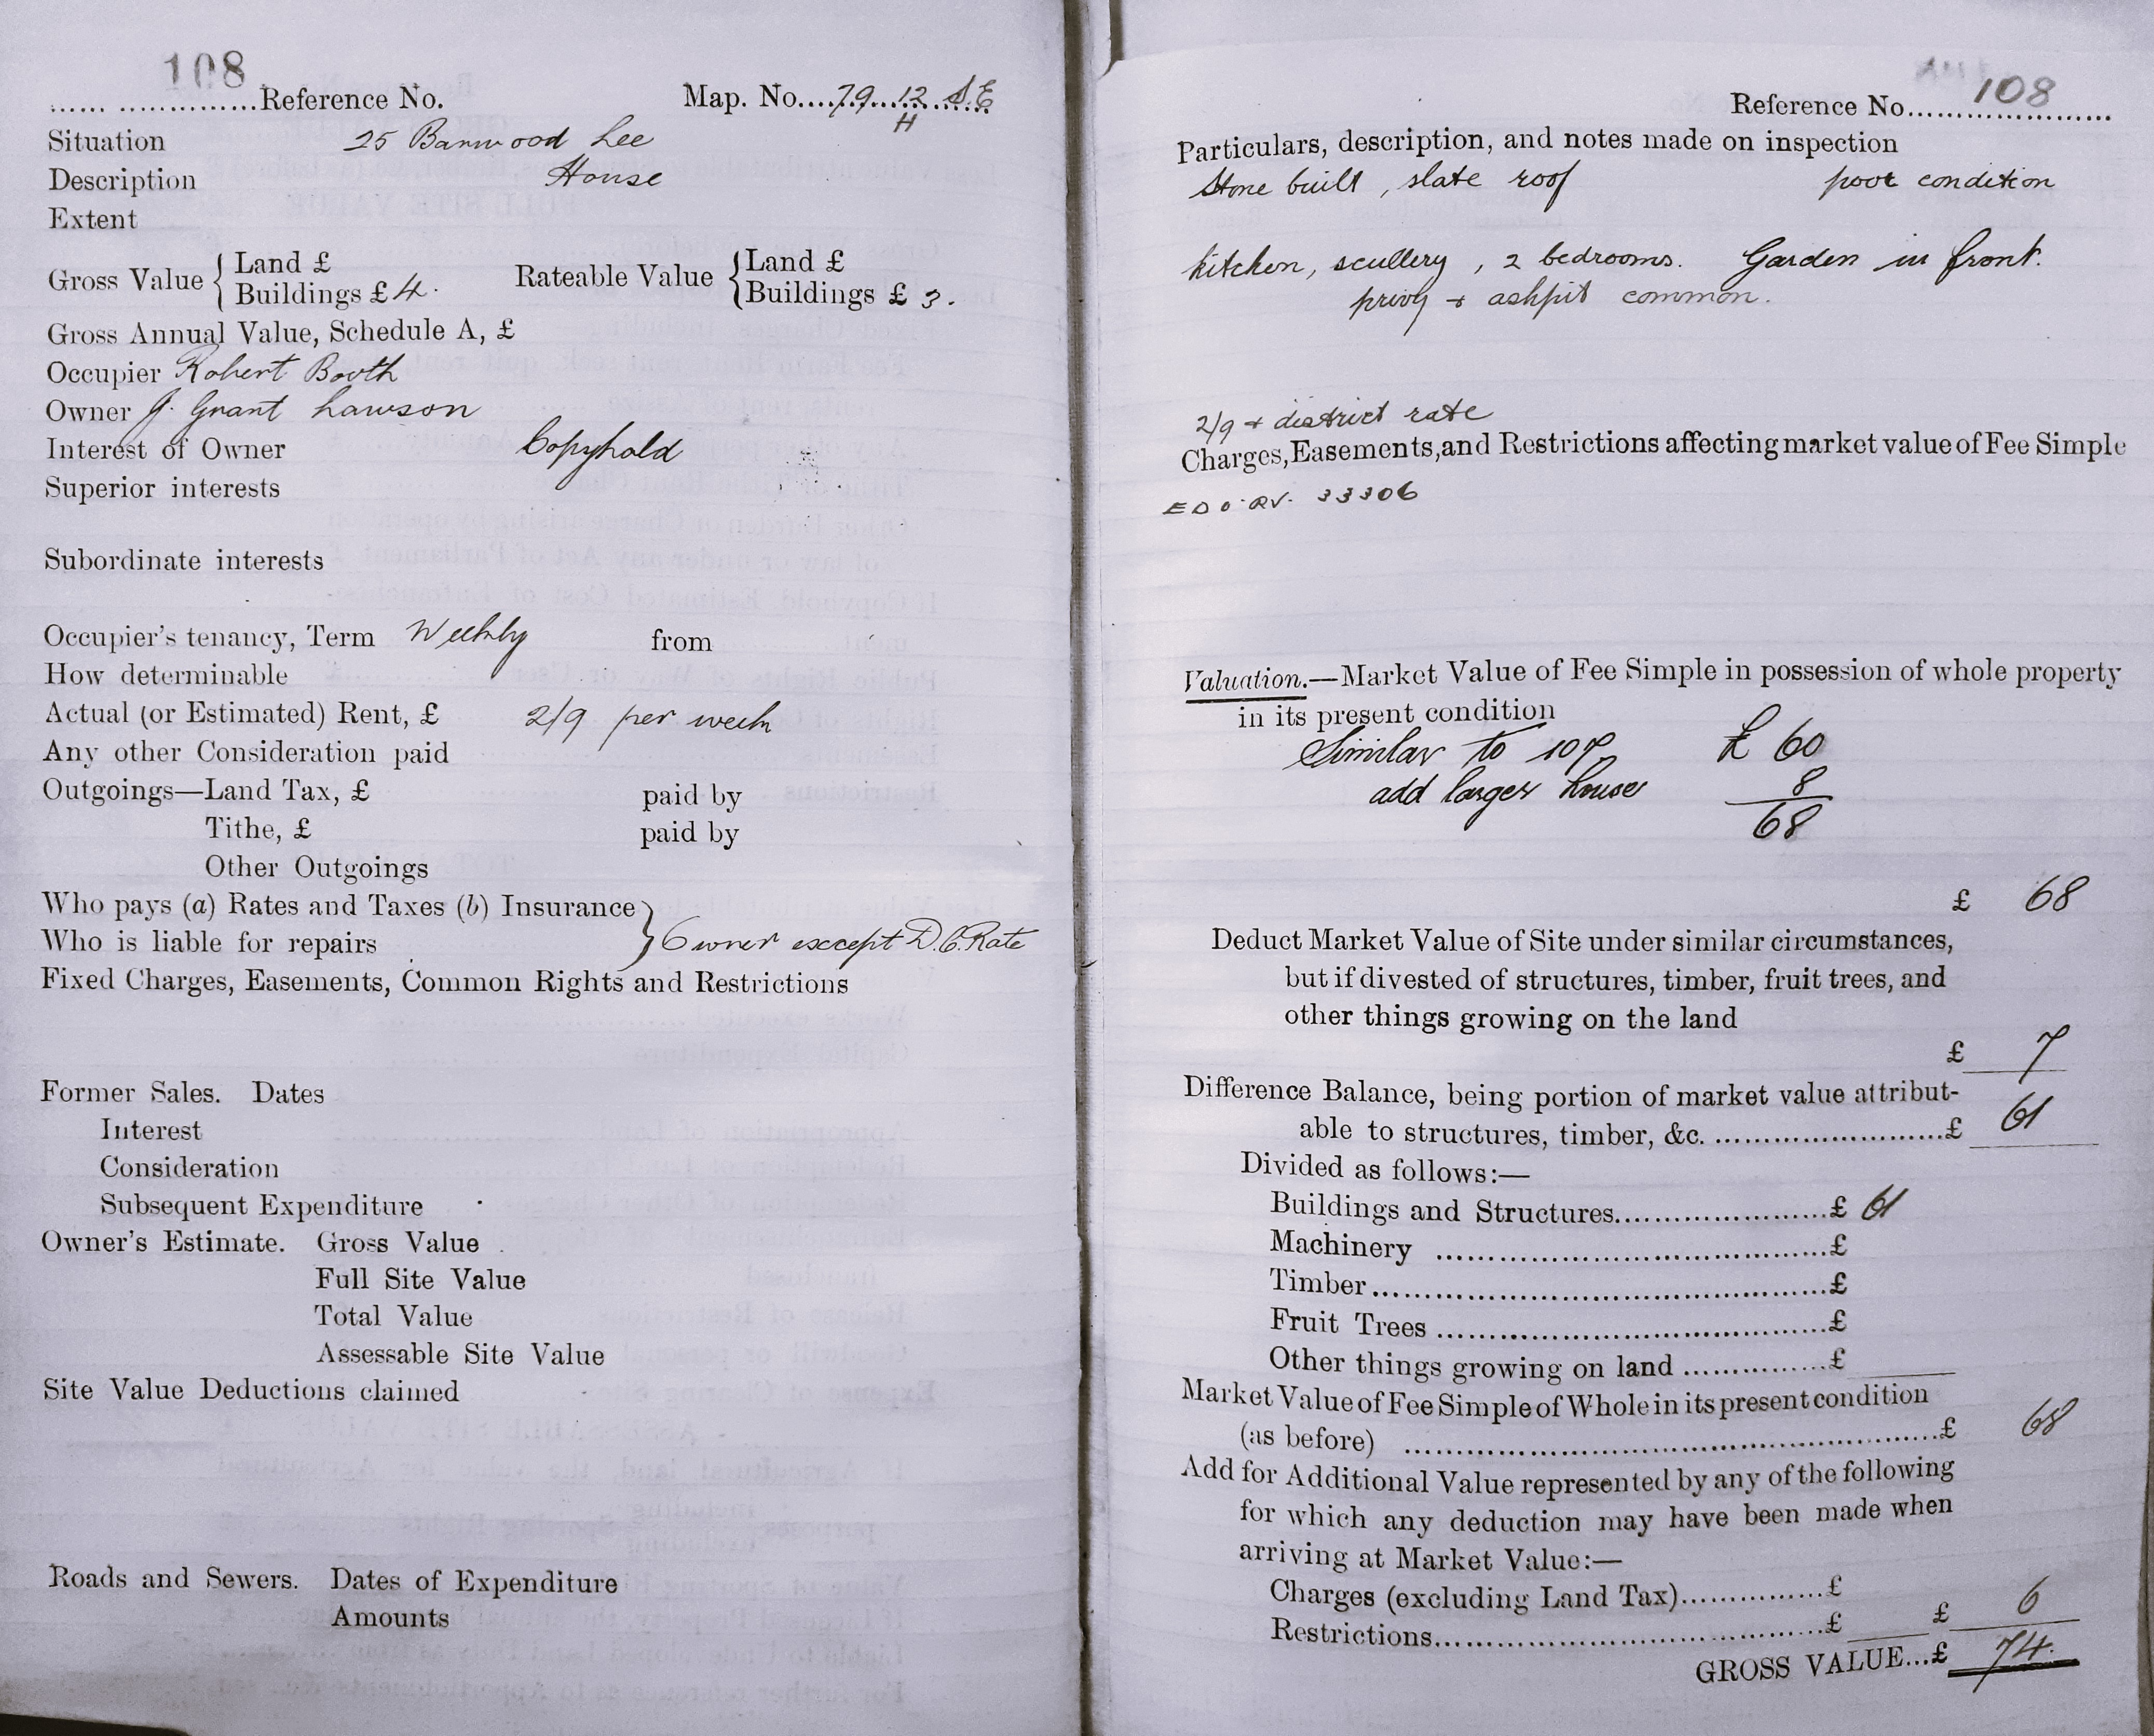 108
...... ..............Reference No. Map. No....79...12...S.E
H
Situation 25 Barnwood Lee
Description House
Extent
Gross Value { Land £ Rateable Value { Land £
Buildings £ 4. Buildings £ 3.
Gross Annual Value, Schedule A, £
Occupier Robert Booth
Owner J. Grant Lawson
Interest of Owner Copyhold
Superior interests
Subordinate interests
Occupier's tenancy, Term Weekly from
How determinable
Actual (or Estimated) Rent, £ 2/9 per week
Any other Consideration paid
Outgoings—Land Tax, £ paid by
Tithe, £ paid by
Other Outgoings
Who pays (a) Rates and Taxes (b) Insurance }
Who is liable for repairs } Owner except D.C. Rate
Fixed Charges, Easements, Common Rights and Restrictions
Former Sales. Dates
Interest
Consideration
Subsequent Expenditure
Owner's Estimate. Gross Value
Full Site Value
Total Value
Assessable Site Value
Site Value Deductions claimed
Roads and Sewers. Dates of Expenditure
Amounts
Reference No....108....
Particulars, description, and notes made on inspection
Stone built, slate roof poor condition
kitchen, scullery, 2 bedrooms. Garden in front.
privy + ashpit common.
2/9 + district rate
Charges, Easements, and Restrictions affecting market value of Fee Simple
33306
Valuation.—Market Value of Fee Simple in possession of whole property
in its present condition
Similar to 107 £ 60
add larger house 8
68
£ 68
Deduct Market Value of Site under similar circumstances,
but if divested of structures, timber, fruit trees, and
other things growing on the land
£ 7
Difference Balance, being portion of market value attribut-
able to structures, timber, &c. ........................£ 61
Divided as follows:—
Buildings and Structures.......................£ 61
Machinery ..........................................£
Timber................................................£
Fruit Trees ..........................................£
Other things growing on land ...............£
Market Value of Fee Simple of Whole in its present condition
(as before) .......................................................£ 68
Add for Additional Value represented by any of the following
for which any deduction may have been made when
arriving at Market Value:—
Charges (excluding Land Tax)...............£
Restrictions..........................................£ £ 6
GROSS VALUE...£ 74.